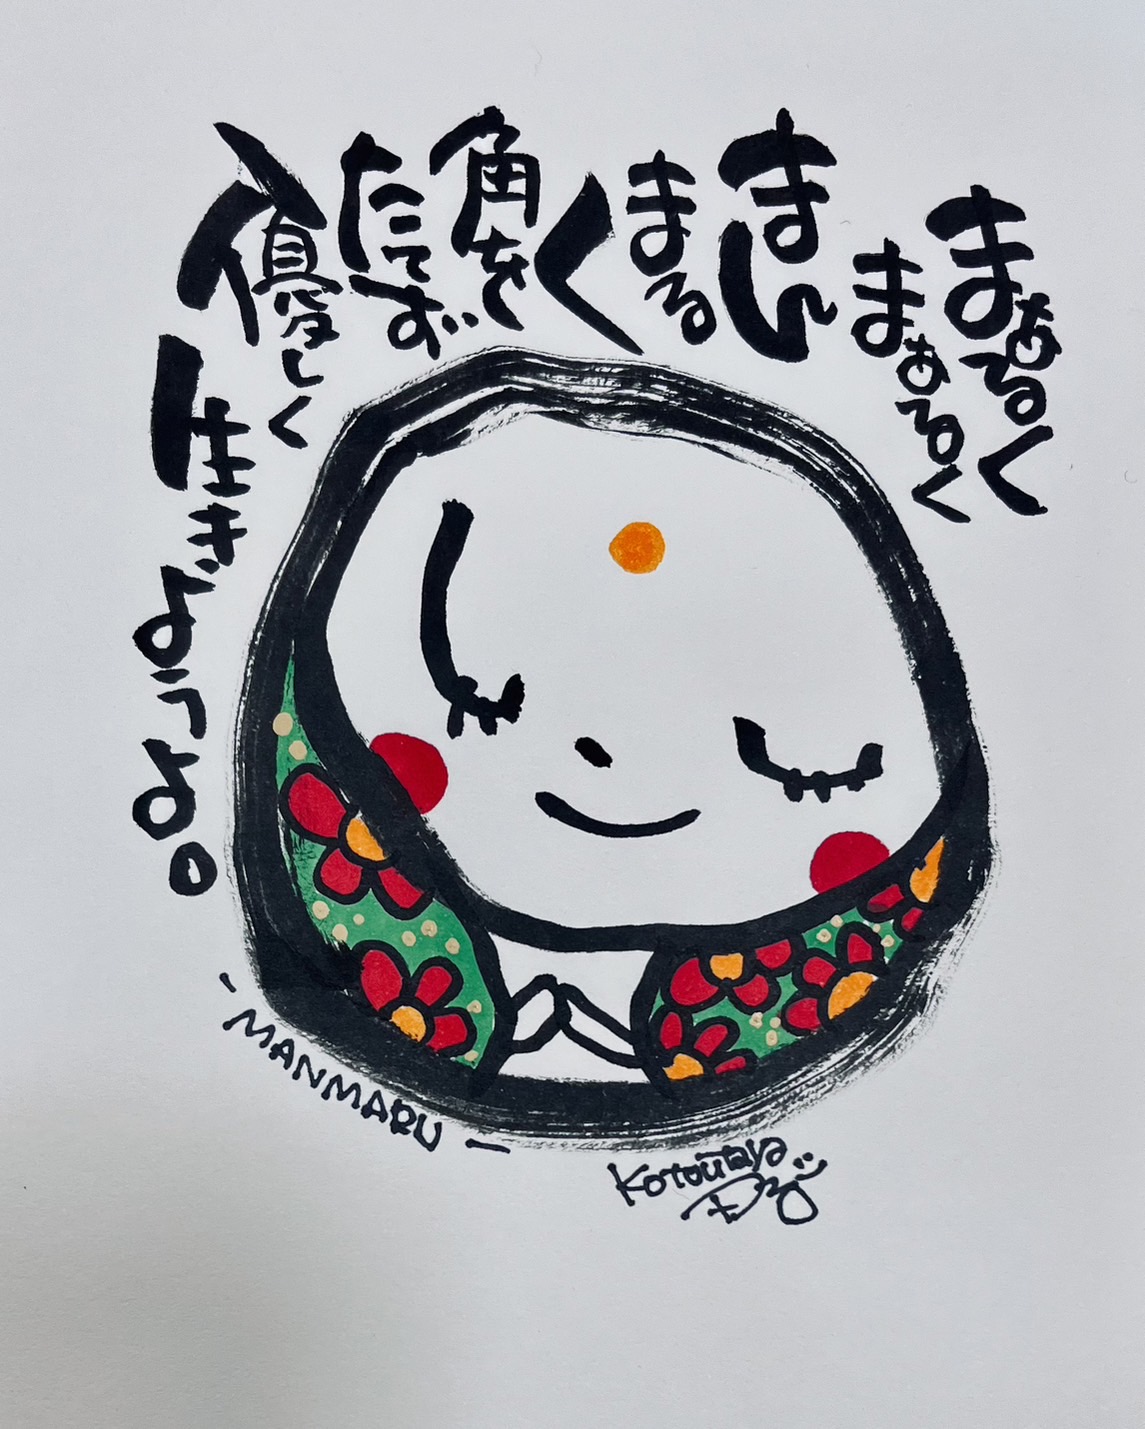 まぁるく
まぁるく
まん
まるく
角を
たてず
優しく
生きようよ。
-MANMARU-
Kotoutaya